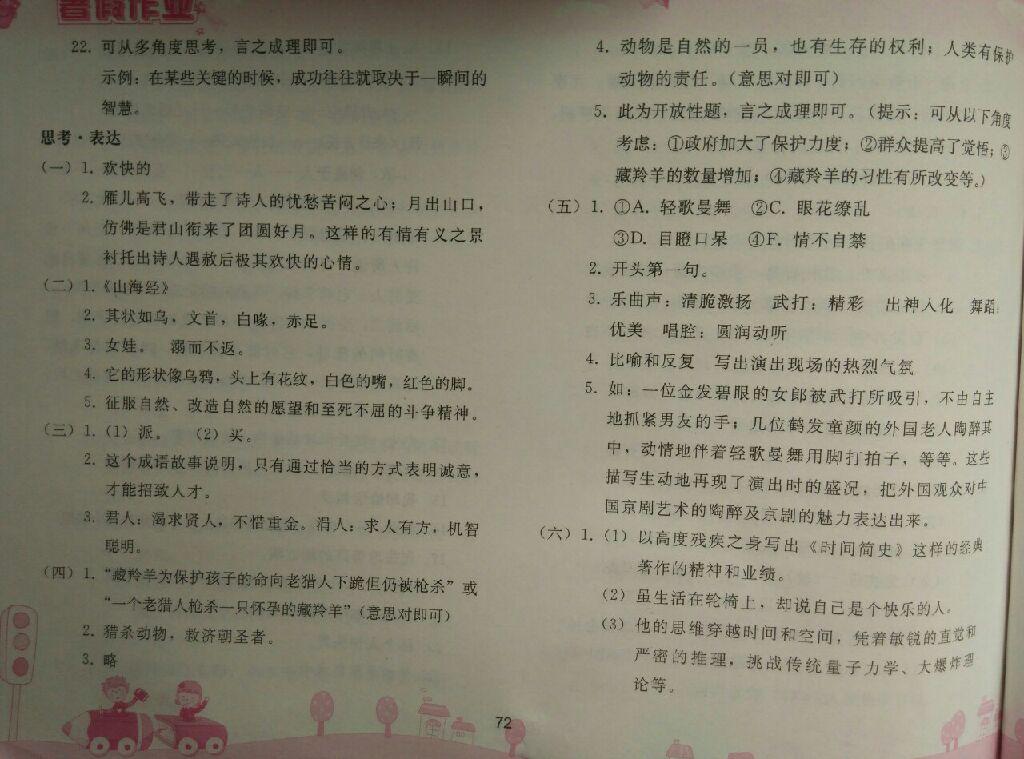 暑假作业
22. 可从多角度思考，言之成理即可。
示例：在某些关键的时候，成功往往就取决于一瞬间的
智慧。
思考·表达
（一）1. 欢快的
2. 雁儿高飞，带走了诗人的忧愁苦闷之心；月出山口，
仿佛是君山衔来了团圆好月。这样的有情有义之景
衬托出诗人遇赦后极其欢快的心情。
（二）1.《山海经》
2. 其状如乌，文首，白喙，赤足。
3. 女娃。 溺而不返。
4. 它的形状像乌鸦，头上有花纹，白色的嘴，红色的脚。
5. 征服自然、改造自然的愿望和至死不屈的斗争精神。
（三）1.（1）派。 （2）买。
2. 这个成语故事说明，只有通过恰当的方式表明诚意，
才能招致人才。
3. 君人：渴求贤人，不惜重金。涓人：求人有方，机智
聪明。
（四）1.“藏羚羊为保护孩子的命向老猎人下跪但仍被枪杀”或
“一个老猎人枪杀一只怀孕的藏羚羊”（意思对即可）
2. 猎杀动物，救济朝圣者。
3. 略
4. 动物是自然的一员，也有生存的权利；人类有保护
动物的责任。（意思对即可）
5. 此为开放性题，言之成理即可。（提示：可从以下角度
考虑：①政府加大了保护力度；②群众提高了觉悟；③
藏羚羊的数量增加；④藏羚羊的习性有所改变等。）
（五）1. ①A. 轻歌曼舞 ②C. 眼花缭乱
③D. 目瞪口呆 ④F. 情不自禁
2. 开头第一句。
3. 乐曲声：清脆激扬 武打：精彩 出神入化 舞蹈：
优美 唱腔：圆润动听
4. 比喻和反复 写出演出现场的热烈气氛
5. 如：一位金发碧眼的女郎被武打所吸引，不由自主
地抓紧男友的手；几位鹤发童颜的外国老人陶醉其
中，动情地伴着轻歌曼舞用脚打拍子，等等。这些
描写生动地再现了演出时的盛况，把外国观众对中
国京剧艺术的陶醉及京剧的魅力表达出来。
（六）1.（1）以高度残疾之身写出《时间简史》这样的经典
著作的精神和业绩。
（2）虽生活在轮椅上，却说自己是个快乐的人。
（3）他的思维穿越时间和空间，凭着敏锐的直觉和
严密的推理，挑战传统量子力学、大爆炸理
论等。
72